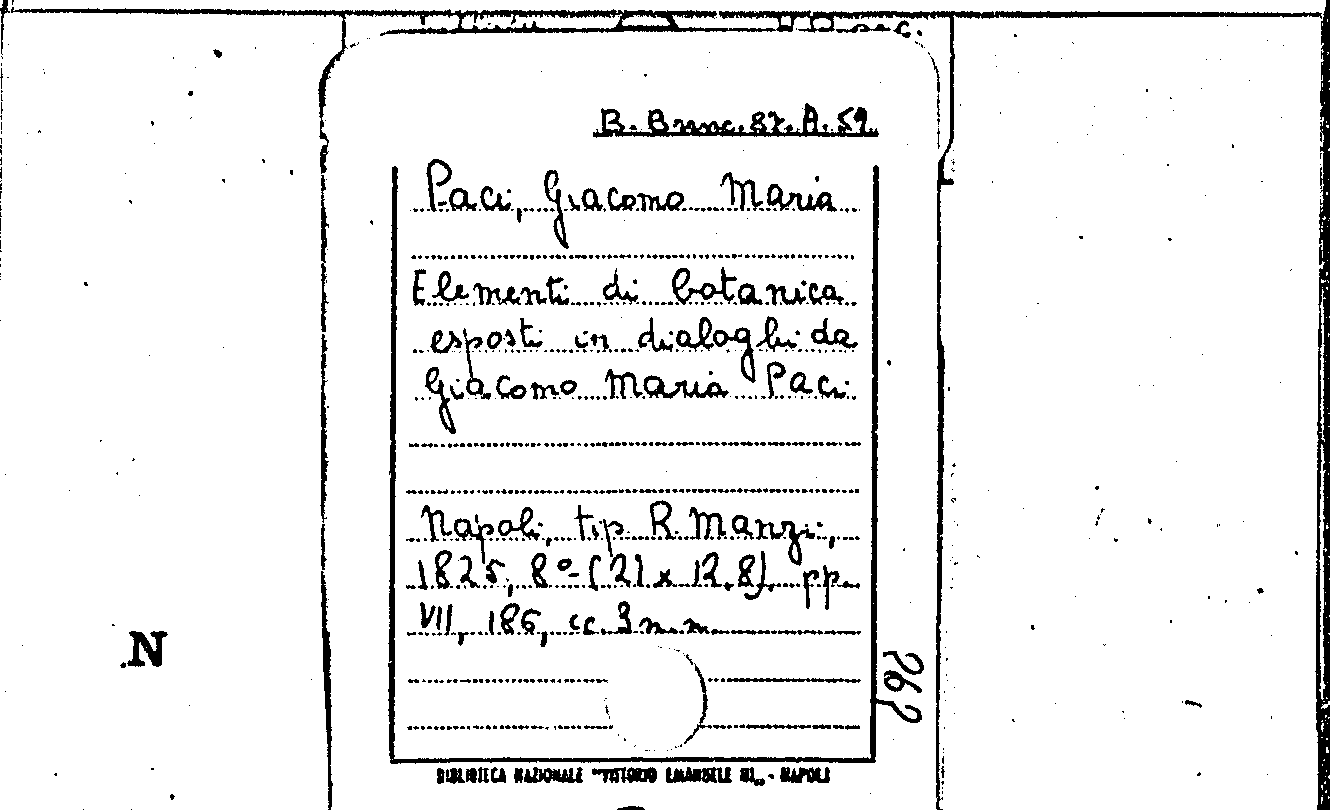 B. Branc. 87. A. 59
Paci, Giacomo Maria
Elementi di botanica
esposti in dialoghi da
Giacomo Maria Paci
Napoli, tip R. Manzi,
1825, 8° (21 x 12.8) pp.
VII, 186, cc. 3 n.n.
262
N
BIBLIOTECA NAZIONALE "VITTORIO EMANUELE III„ - NAPOLI